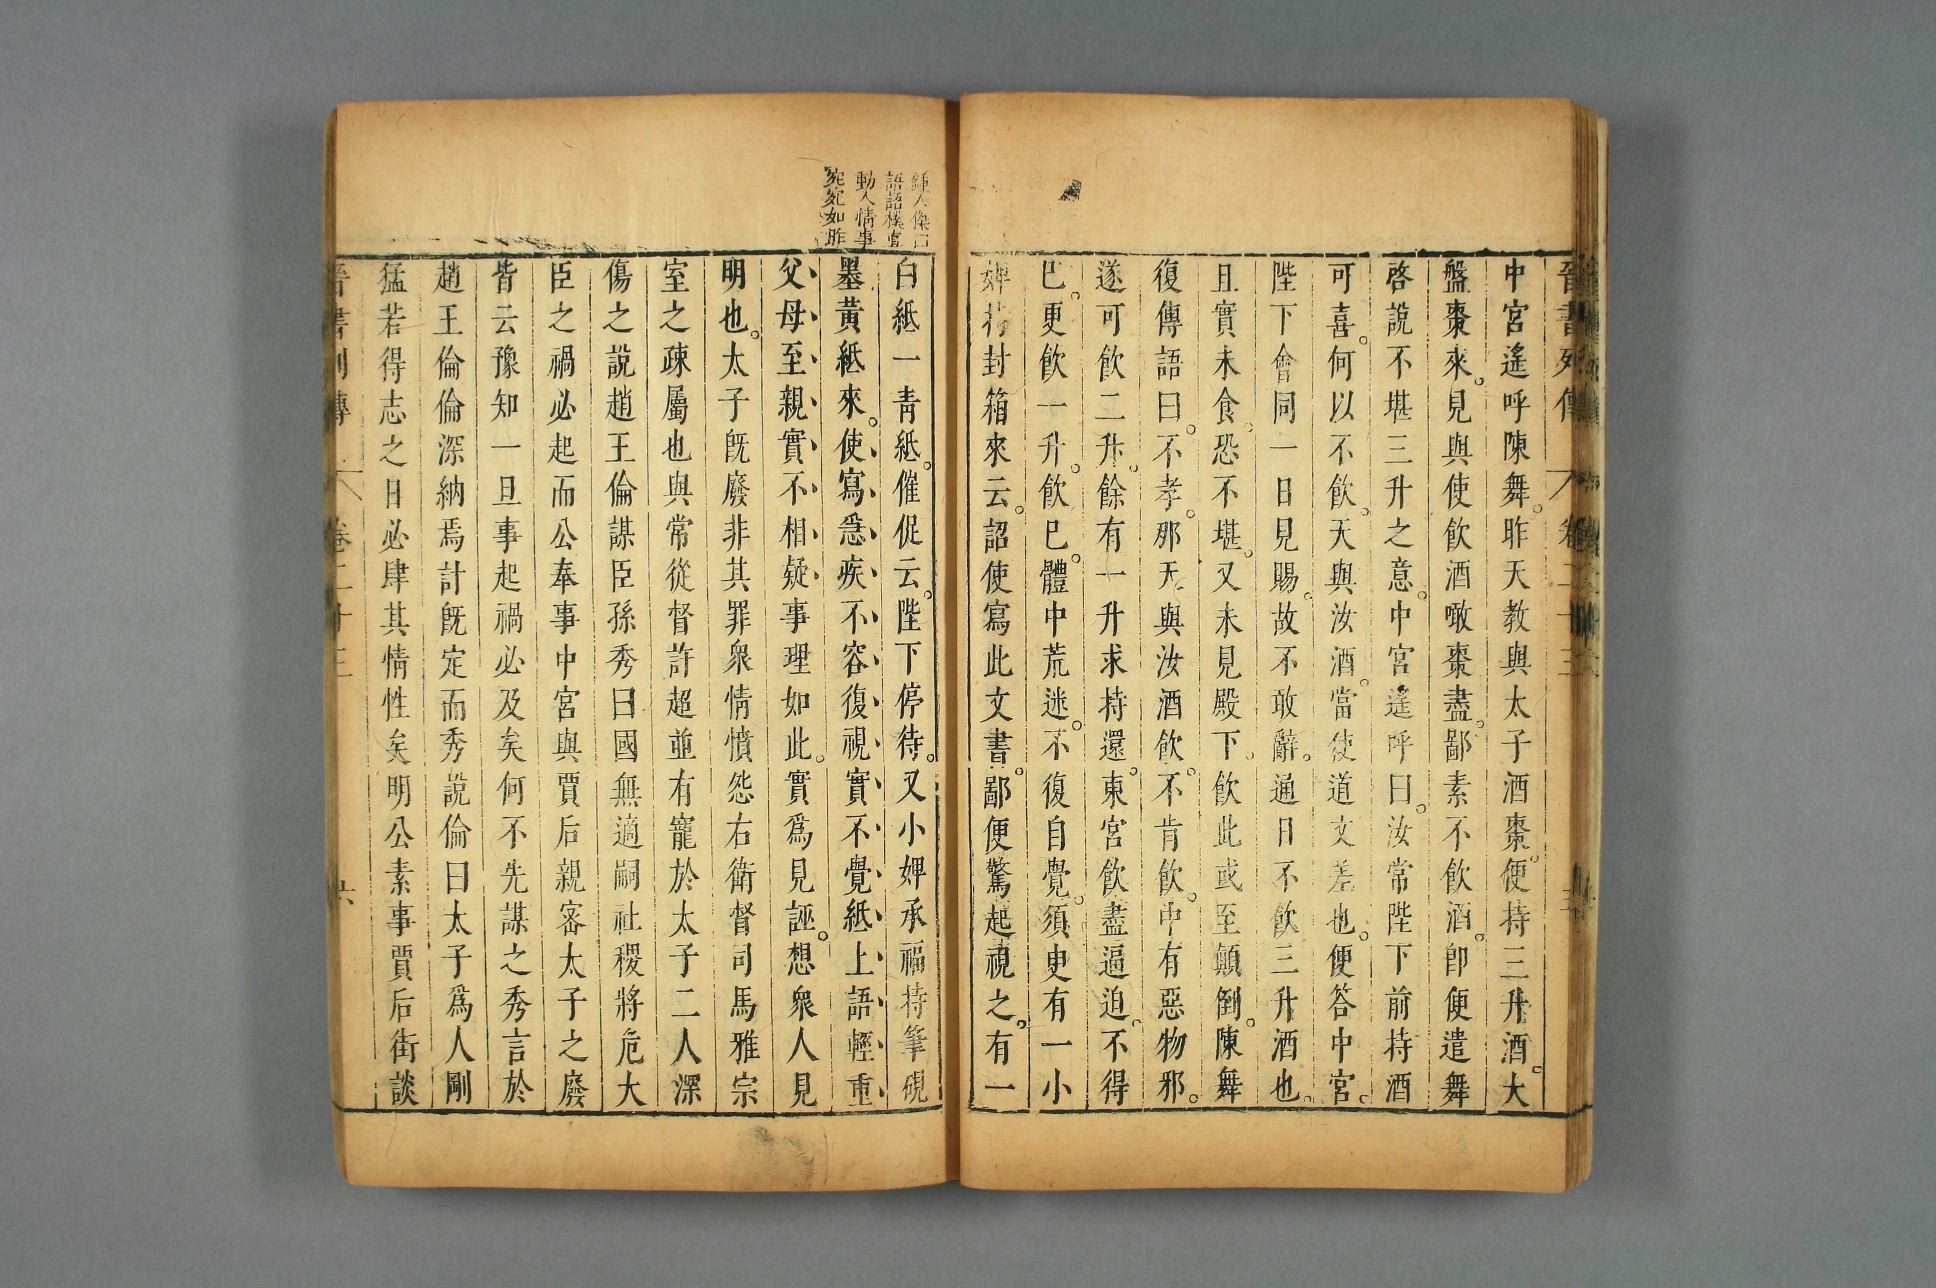 晉書列傳 卷二十三
中宮遙呼陳舞昨天教與太子酒棗便持三升酒大
盤棗來見與使飲酒噉棗盡鄙素不飲酒卽便遣舞
啓說不堪三升之意中宮遙呼曰汝常陛下前持酒
可喜何以不飲天與汝酒當使道文差也便答中宮
陛下會同一日見賜故不敢辭通日不飲三升酒也
且實未食恐不堪又未見殿下飲此或至顛倒陳舞
復傳語曰不孝那天與汝酒飲不肯飲中有惡物邪
遂可飲二升餘有一升求持還東宮飲盡逼迫不得
巳更飲一升飲巳體中荒迷不復自覺須臾有一小
婢持封箱來云詔使寫此文書鄙便驚起視之有一
鍾人傑曰
語語樸直
動人情事
宛宛如昨
白紙一青紙催促云陛下停待又小婢承福持筆硯
墨黃紙來使寫急疾不容復視實不覺紙上語輕重
父母至親實不相疑事理如此實爲見誣想衆人見
明也太子旣廢非其罪衆情憤怨右衛督司馬雅宗
室之疎屬也與常從督許超並有寵於太子二人深
傷之說趙王倫謀臣孫秀曰國無適嗣社稷將危大
臣之禍必起而公奉事中宮與賈后親密太子之廢
皆云豫知一旦事起禍必及矣何不先謀之秀言於
趙王倫倫深納焉計旣定而秀說倫曰太子爲人剛
猛若得志之日必肆其情性矣明公素事賈后街談
晉書列傳 卷二十三 六